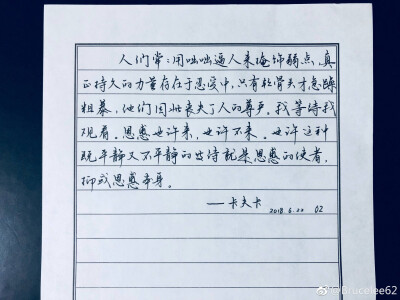 人们常:用咄咄逼人来掩饰弱点,真
正持久的力量存在于忍受中,只有软骨头才急躁
粗暴,他们因此丧失了人的尊严。我等待我
观看。恩惠也许来,也许不来。也许这种
既平静又不平静的等待就是恩惠的使者,
抑或恩惠本身。
——卡夫卡
2018.6.22 02
@Brucelee62